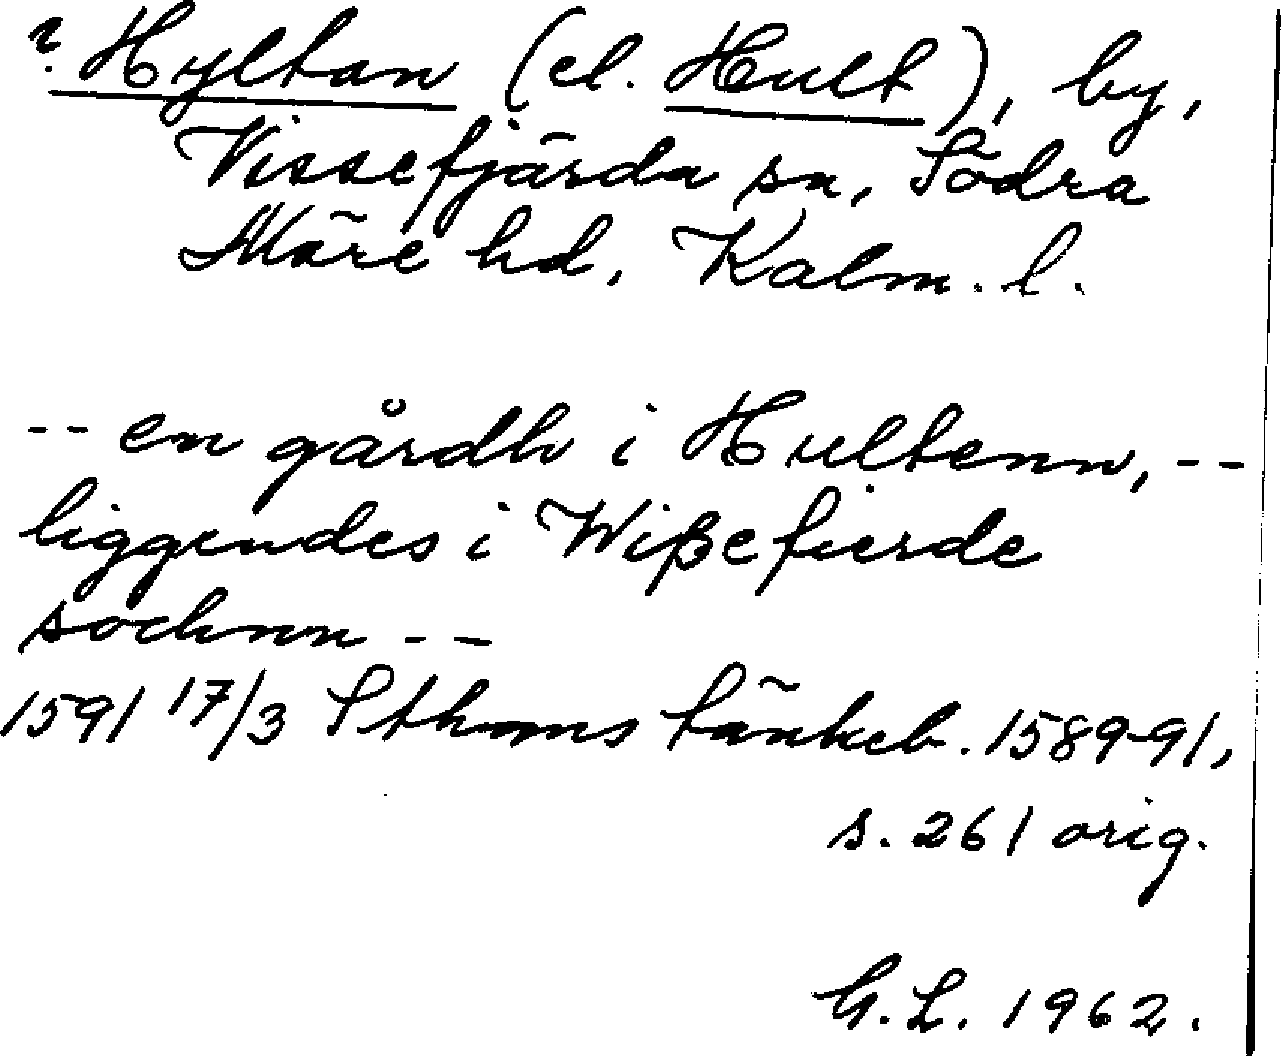 ? Hyltan (el. Hult), by,
Vissefjärda sn, Södra
Möre hd, Kalm. l.
-- en gårdh i Hultenn, --
liggendes i Wißefierde
sochnn --
1591 17/3 Sthms tänkeb. 1589-91,
s. 261 orig.
G.L. 1962.